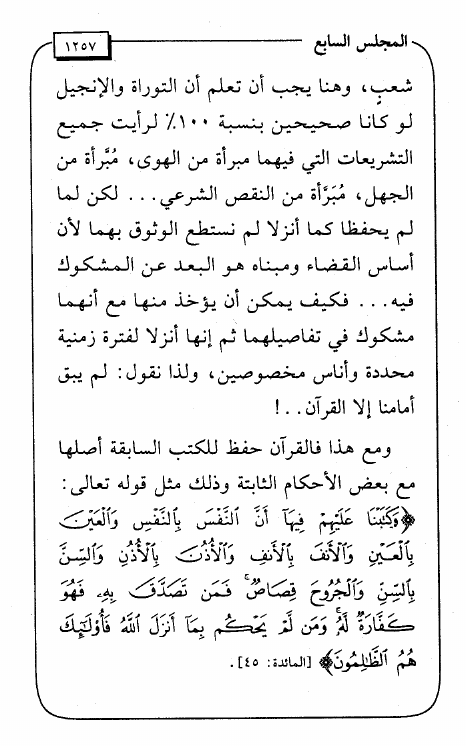 المجلس السابع
١٢٥٧
شعبٍ، وهنا يجب أن تعلم أن التوراة والإنجيل
لو كانا صحيحين بنسبة ١٠٠٪ لرأيت جميع
التشريعات التي فيهما مبرأة من الهوى، مُبَّرأة من
الجهل، مُبَرَّأة من النقص الشرعي... لكن لما
لم يحفظا كما أنزلا لم نستطع الوثوق بهما لأن
أساس القضاء ومبناه هو البعد عن المشكوك
فيه... فكيف يمكن أن يؤخذ منها مع أنهما
مشكوك في تفاصيلهما ثم إنها أنزلا لفترة زمنية
محددة وأناس مخصوصين، ولذا نقول: لم يبق
أمامنا إلا القرآن..!
ومع هذا فالقرآن حفظ للكتب السابقة أصلها
مع بعض الأحكام الثابتة وذلك مثل قوله تعالى:
﴿وَكَتَبْنَا عَلَيْهِمْ فِيهَآ أَنَّ النَّفْسَ بِالنَّفْسِ وَالْعَيْنَ
بِالْعَيْنِ وَالْأَنفَ بِالْأَنفِ وَالْأُذُنَ بِالْأُذُنِ وَالسِّنَّ
بِالسِّنِّ وَالْجُرُوحَ قِصَاصٌ ۚ فَمَن تَصَدَّقَ بِهِۦ فَهُوَ
كَفَّارَةٌ لَّهُۥ ۚ وَمَن لَّمْ يَحْكُم بِمَآ أَنزَلَ اللَّهُ فَأُولَٰٓئِكَ
هُمُ الظَّالِمُونَ﴾ [المائدة: ٤٥].